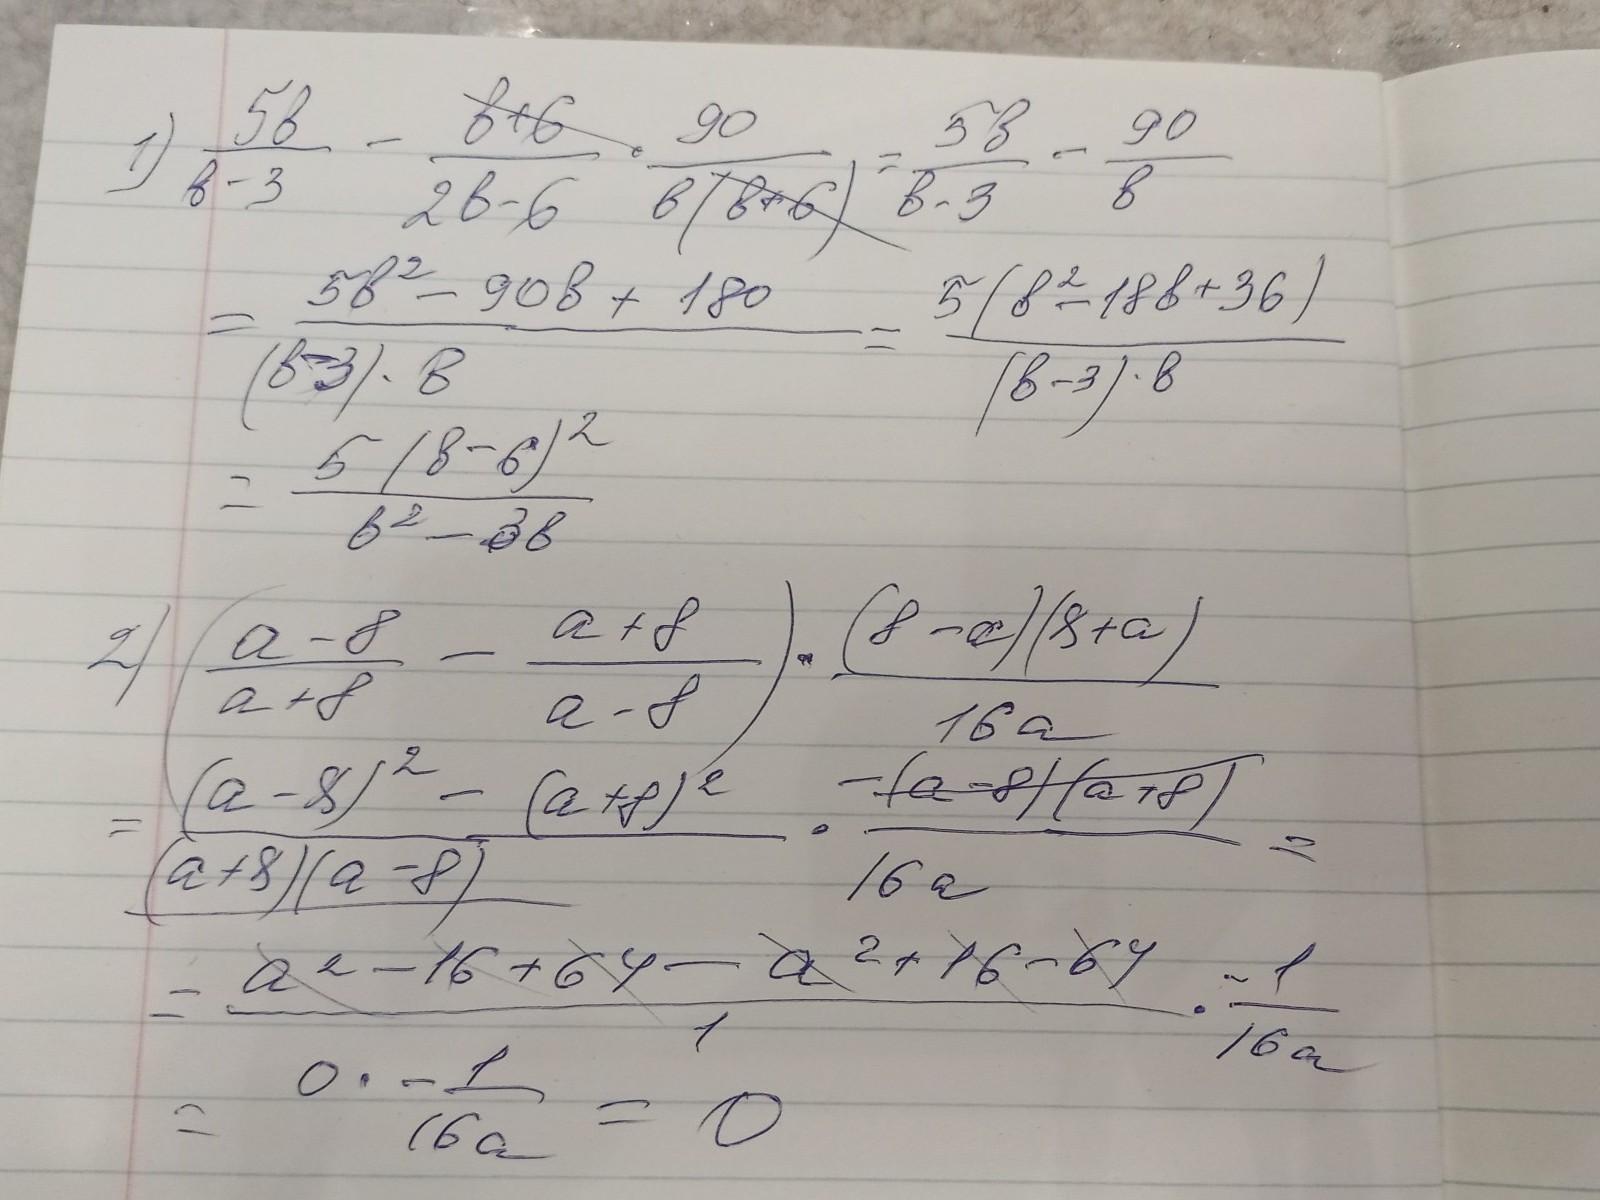 1) 5в/(в-3) - (в+6)/(2в-6) · 90/(в(в+6)) = 5в/(в-3) - 90/в
= (5в² - 90в + 180)/((в-3)·в) = 5(в² - 18в + 36)/((в-3)·в)
= 5(в-6)²/(в² - 3в)
2) ((a-8)/(a+8) - (a+8)/(a-8)) · (8-a)(8+a)/(16a)
= ((a-8)² - (a+8)²)/((a+8)(a-8)) · -(a-8)(a+8)/(16a) =
= (a² - 16 + 64 - a² + 16 - 64)/1 · -1/(16a)
= 0 · -1/(16a) = 0